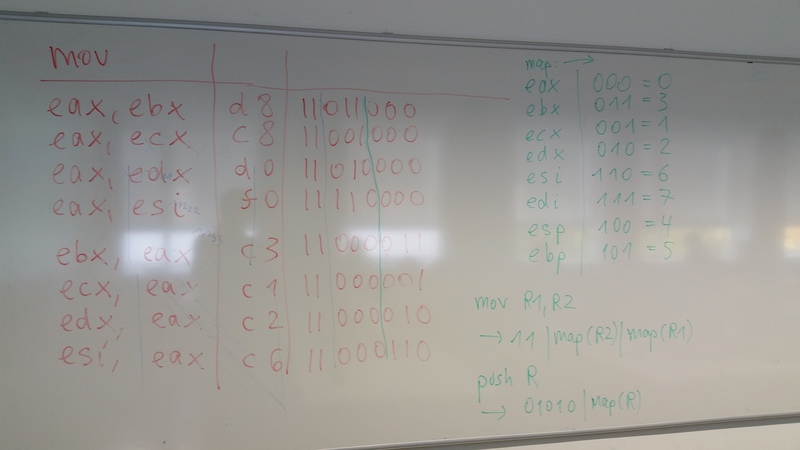 mov
eax, ebx d8 11011000
eax, ecx c8 11001000
eax, edx d0 11010000
eax, esi f0 11110000
ebx, eax c3 11000011
ecx, eax c1 11000001
edx, eax c2 11000010
esi, eax c6 11000110
map: →
eax 000 = 0
ebx 011 = 3
ecx 001 = 1
edx 010 = 2
esi 110 = 6
edi 111 = 7
esp 100 = 4
ebp 101 = 5
mov R1, R2
→ 11 | map(R2) | map(R1)
push R
→ 01010 | map(R)